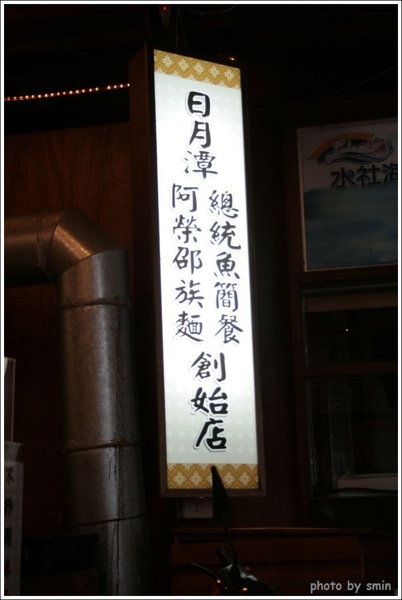 日月潭
總統魚簡餐
阿榮邵族麵
創始店
水社海
photo by smin